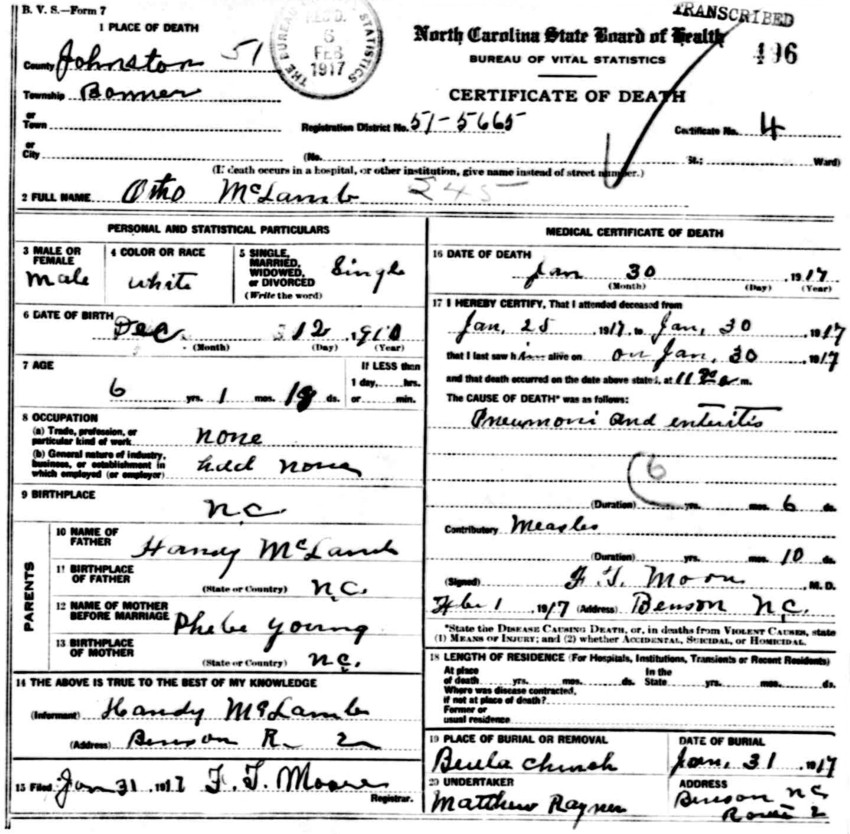 B. V. S.—Form 7
TRANSCRIBED
1 PLACE OF DEATH
North Carolina State Board of Health
BUREAU OF VITAL STATISTICS
496
THE BUREAU OF VITAL STATISTICS
REC'D.
6
FEB
1917
County Johnston 51
CERTIFICATE OF DEATH
Township Banner
or
Town
Registration District No. 51-5665
Certificate No. 4
or
City
(No. , St.; Ward)
(If death occurs in a hospital, or other institution, give name instead of street number.)
2 FULL NAME Otho McLamb 245
PERSONAL AND STATISTICAL PARTICULARS
3 MALE OR FEMALE
Male
4 COLOR OR RACE
white
5 SINGLE,
MARRIED,
WIDOWED,
or DIVORCED
(Write the word)
Single
6 DATE OF BIRTH Dec 12, 1910
(Month) (Day) (Year)
7 AGE
6 yrs. 1 mos. 18 ds.
If LESS than
1 day, hrs.
or min.
8 OCCUPATION
(a) Trade, profession, or
particular kind of work none
(b) General nature of industry,
business, or establishment in
which employed (or employer) held none
9 BIRTHPLACE
N.C.
PARENTS
10 NAME OF
FATHER Handy McLamb
11 BIRTHPLACE
OF FATHER
(State or Country) N.C.
12 NAME OF MOTHER
BEFORE MARRIAGE Phebe Young
13 BIRTHPLACE
OF MOTHER
(State or Country) N.C.
14 THE ABOVE IS TRUE TO THE BEST OF MY KNOWLEDGE
(Informant) Handy McLamb
(Address) Benson R. 2
15 Filed Jan 31 1917 F. T. Moore
Registrar.
MEDICAL CERTIFICATE OF DEATH
16 DATE OF DEATH
Jan 30 1917
(Month) (Day) (Year)
17 I HEREBY CERTIFY, That I attended deceased from
Jan, 25 1917, to Jan, 30 1917
that I last saw him alive on on Jan, 30 1917
and that death occurred on the date above stated, at 11 m.
The CAUSE OF DEATH* was as follows:
Pneumoni and enteritis
6
(Duration) yrs. mos. 6 ds.
Contributory Measles
(Duration) yrs. mos. 10 ds.
(Signed) F. T. Moore M. D.
Feb 1 1917 (Address) Benson N.C.
*State the DISEASE CAUSING DEATH, or, in deaths from VIOLENT CAUSES, state
(1) MEANS OF INJURY; and (2) whether ACCIDENTAL, SUICIDAL, or HOMICIDAL.
18 LENGTH OF RESIDENCE (For Hospitals, Institutions, Transients or Recent Residents)
At place
of death yrs. mos. ds.
In the
State yrs. mos. ds.
Where was disease contracted,
if not at place of death?
Former or
usual residence
19 PLACE OF BURIAL OR REMOVAL
Beula Church
DATE OF BURIAL
Jan, 31 1917
20 UNDERTAKER
Matthew Raynor
ADDRESS
Benson N.C.
Route 2